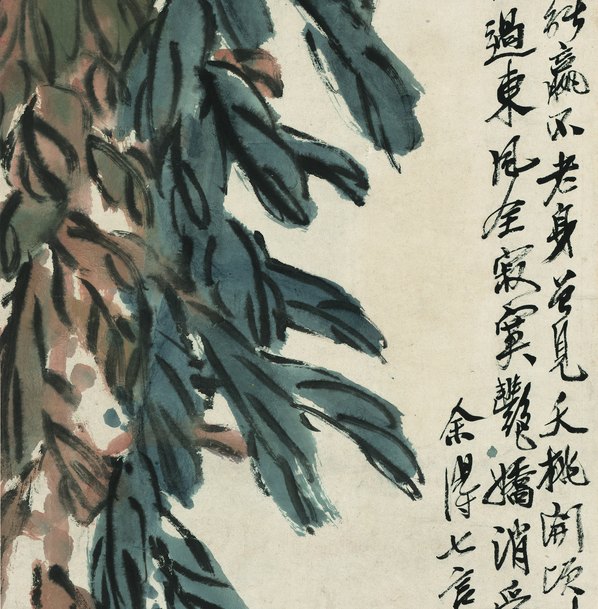 能贏不老身曾見夭桃開頃
過東風全寂寞艷嬌消受
余得七言